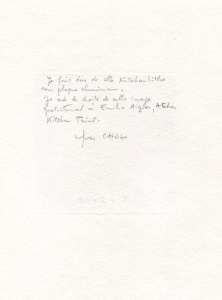 Je fais don de cette Kitchen litho
sur plaque aluminium.
Je cède le droit de cette image
gratuitement à Emilie Aizier Atelier
Kitchen Print.
Yves